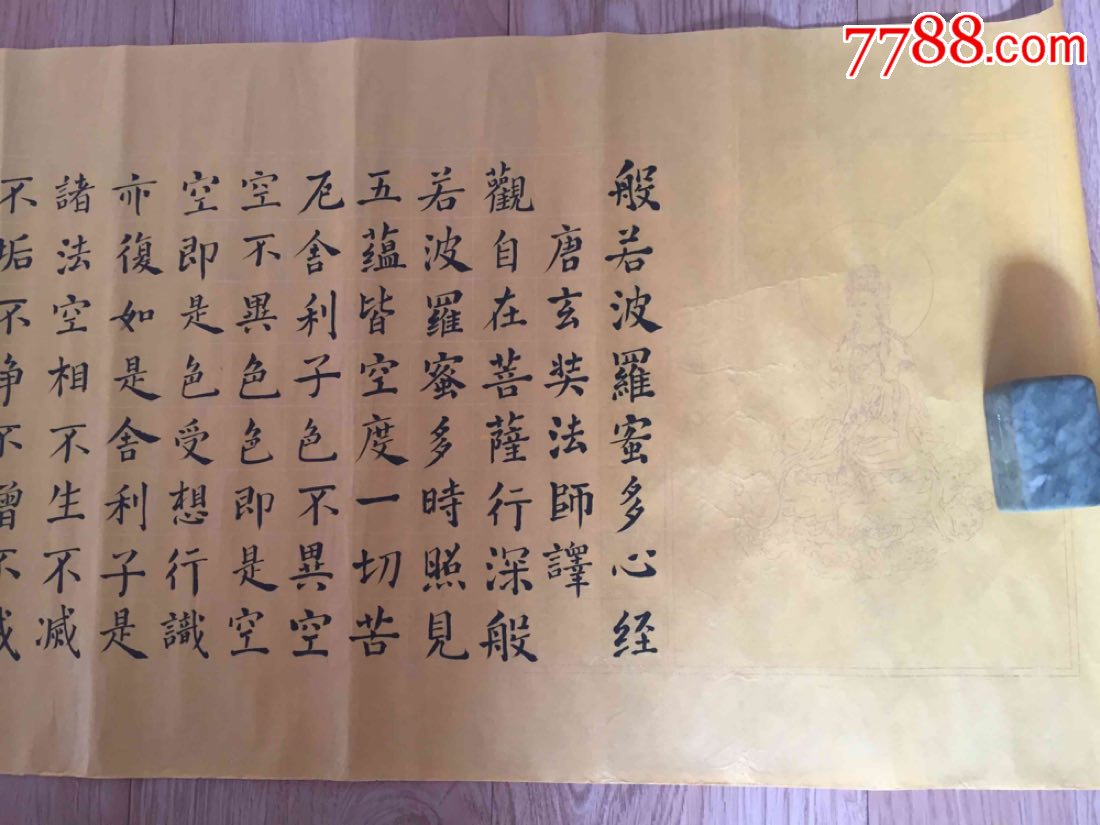 7788.com
般若波羅蜜多心经
唐玄奘法師譯
觀自在菩薩行深般
若波羅蜜多時照見
五蘊皆空度一切苦
厄舍利子色不異空
空不異色色即是空
空即是色受想行識
亦復如是舍利子是
諸法空相不生不滅
不垢不净不增不減